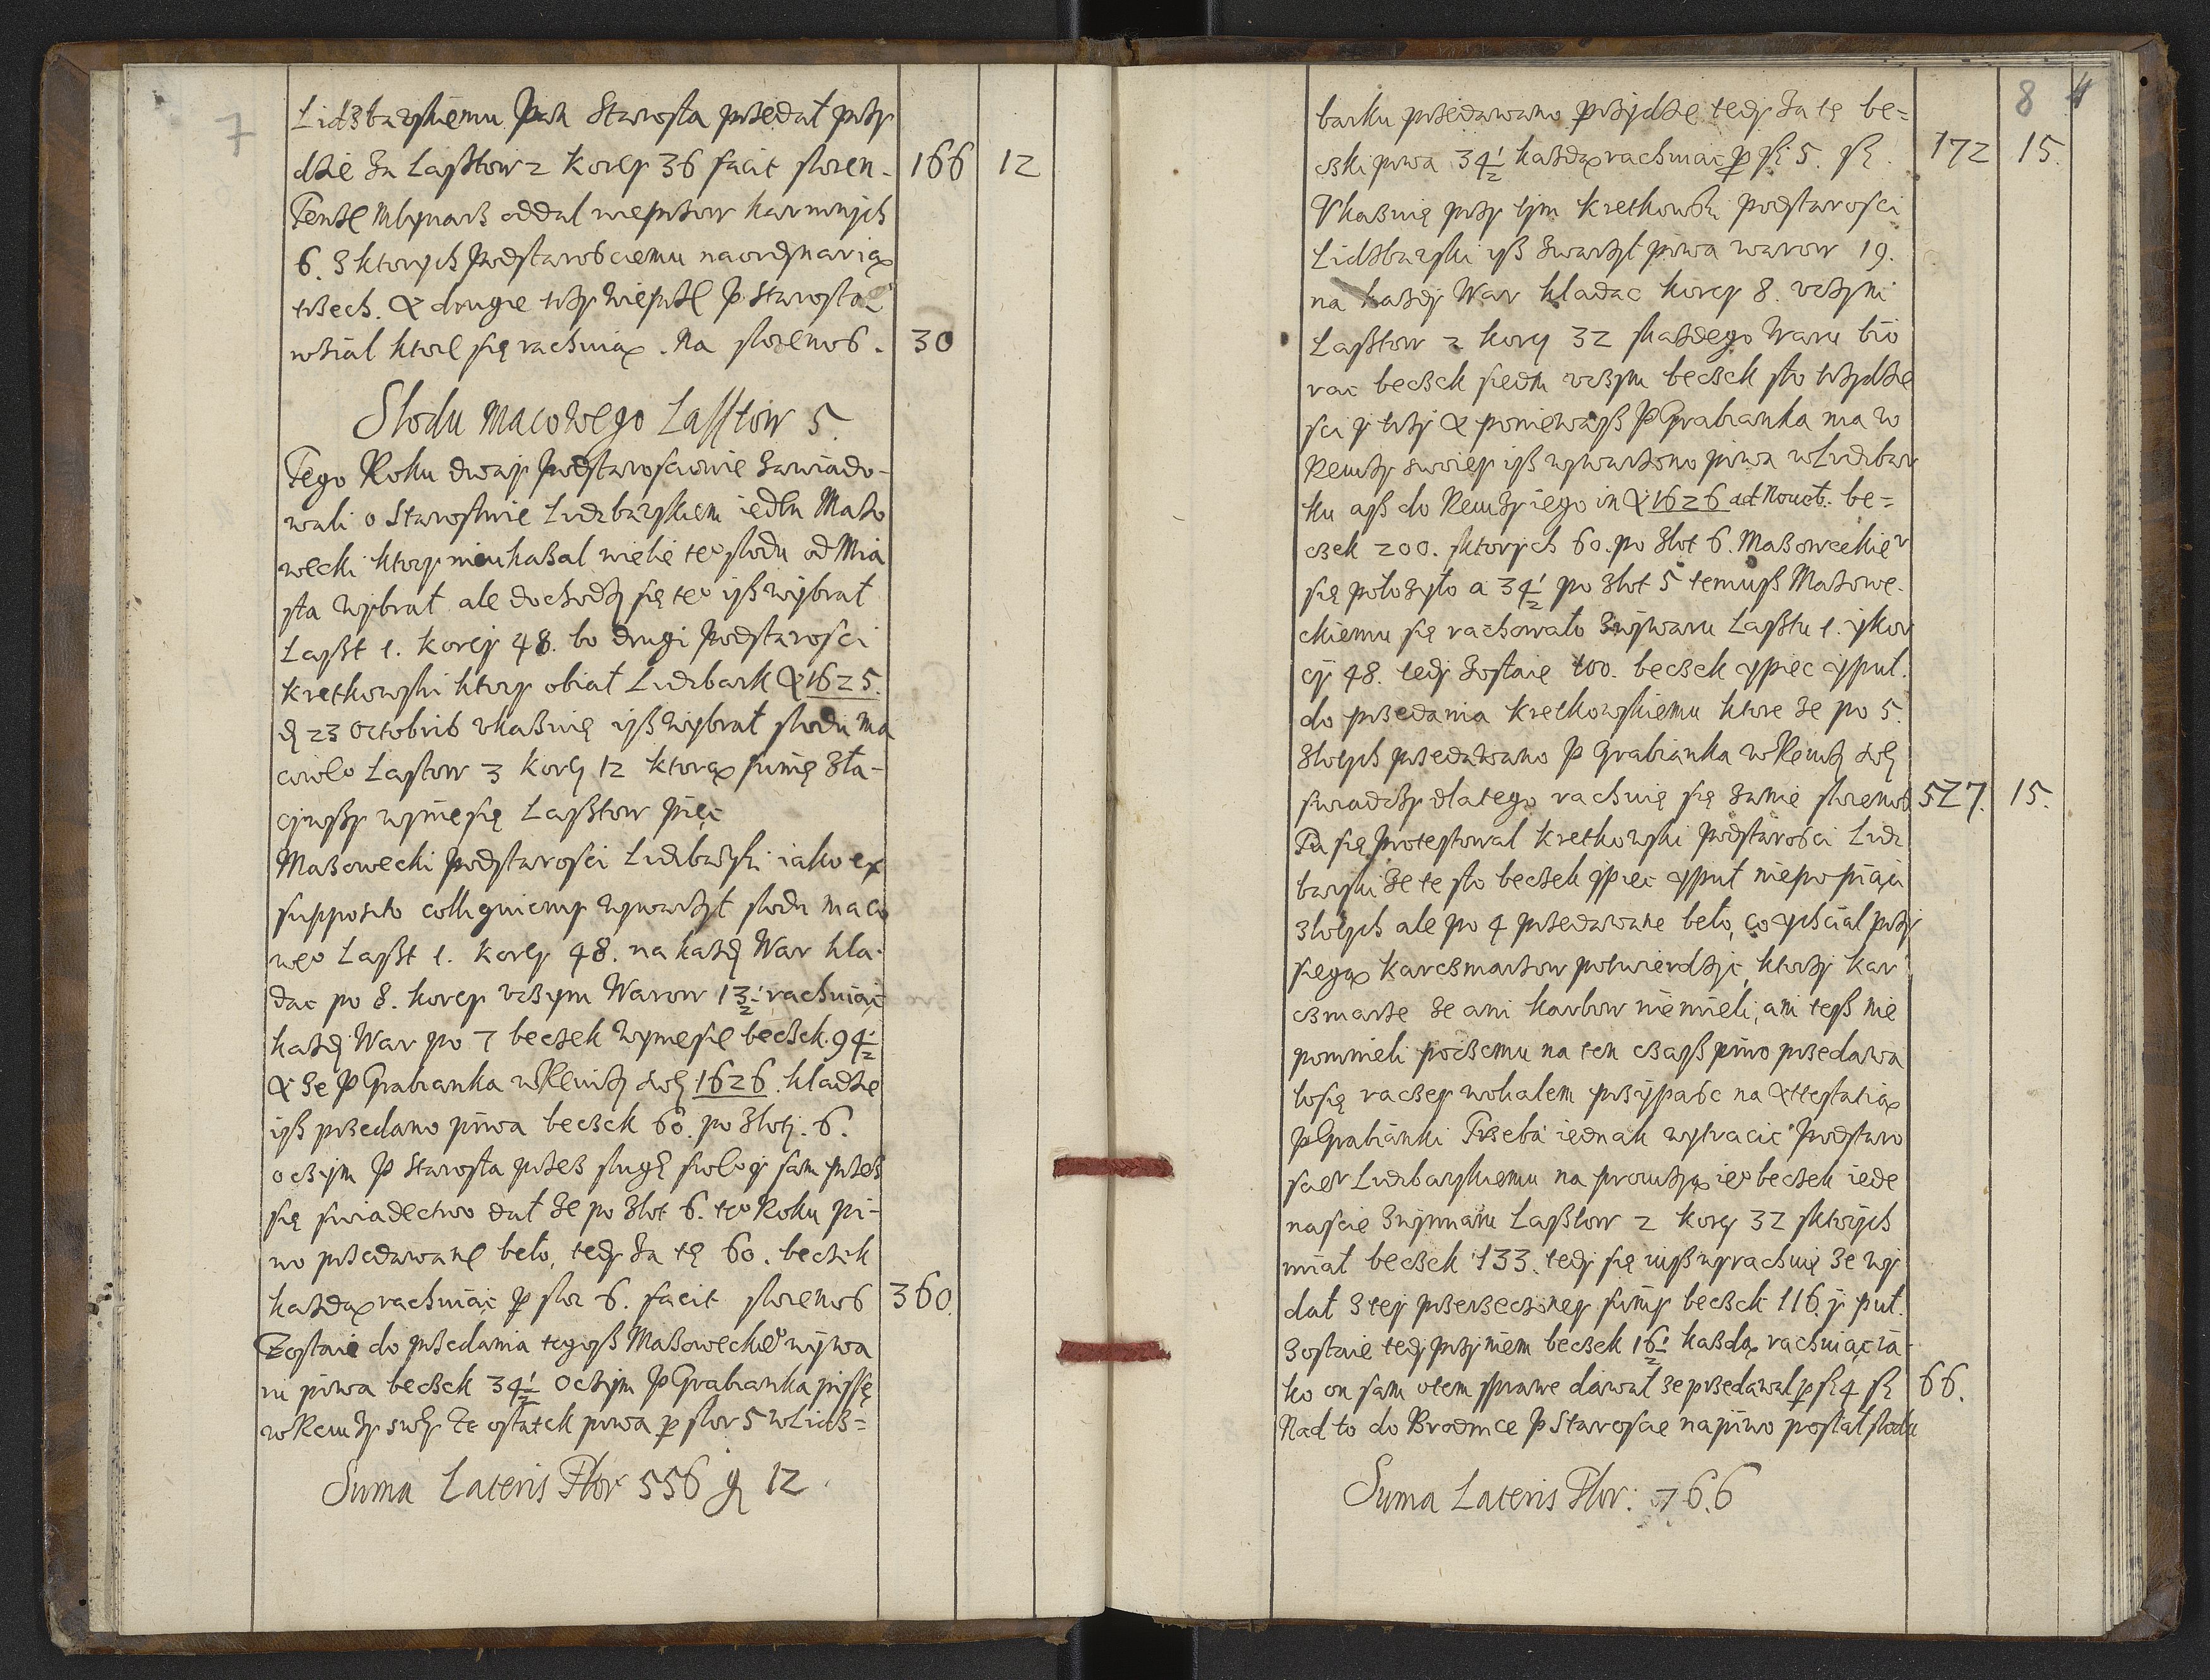 7
Lidzbarskiemu Pan Starosta przedał przy
dzie za Lasztow 2 korcy 36 facit floren. 166 12
Tenze Mlynarz oddal wieprzow karmnych
6. z ktorych Podstarosciemu na ordynarią
trzech. A drugie trzy wieprze P Starosta
wział ktore się rachuią. Na florenos. 30
Slodu Macowego Lasztow 5.
Tego Roku dwaj Podstarosciowie zawiado-
wali o Starostwie Lidzbarskiem ieden Mazo
wecki ktory nieukazal wiele teº slodu od Mia
sta wybrał ale dochodzi się teº isz wybrał
Laszt 1. korcy 48. bo drugi Podstarosci
Kretkowski ktory obiał Lidzbark A 1625.
D 23 Octobris ukaznię isz wybrał slodu ma
coweº Lastow 3 korcy 12 ktorą sumę zła-
czywszy wyniesię Lasztow pięc
Mazowecki podstarosci Lidzbarski iako ex
supposito colligniemy wywarzył slodu maco
weº Laszt 1. korcy 48. na kazdy War kla-
dac po 8. korcy uczym Warow 13½ rachuiąc
kazdy War po 7 beczek wyniesie beczek 94½
A ze P Grabianka w Rewizy swey 1626. kladzie
isz przedano piwa beczek 60. po złoty. 6.
o czym P Starosta przez slugę sweº y sam przez
się swiadectwo dał ze po złot 6. teº Roku pi-
wo przedawane beło, tedy za tę 60. beczek
kazdą rachuiąc p flor 6. facit florenos 360.
Zostaie do przedania tegosz Mazoweckieº wywa
ru piwa beczek 34½ O czym P Grabianka piszę
w Rewizy swey ze ostatek piwa p flor 5 w Lidz=
Suma Lateris Flor 556 g 12

8 4
barku przedawano przydzie tedy za tę be=
czki piwa 34½ kazdą rachuiąc p fl 5. fl. 172 15.
Ukaznię przy tym Kretkowski Podstarosci
Lidzbarski isz zwarzył piwa warow 19.
na kazdy War kladac korcy 8. uczyni
Lasztow 2 korcy 32 skazdego Waru bio
rac beczek siedm uczym beczek sto trzydzie
sci y trzy A poniewasz P Grabianka ma w
Rewizy swoiey isz wywarzono piwa w Lidzbar
ku asz do Rewizy iego in A 1626 ad Nouēb. be=
czek 200. sktorych 60. po złot 6. Mazoweckieº
się polozyło a 34½ po złot 5 temusz Mazowe-
ckiemu się rachowało z wywaru Lasztu 1. y kor
cy 48. tedy zostaie 100. beczek y piec y puł.
do przedania Kretkowskiemu ktore ze po 5.
złotych przedawano P Grabianka w Rewizy swey
swiadczy dlatego rachuię się za nie florenos 527. 15.
Tu się protestowal Kretkowski Podstarosci Lidz
barski ze te sto beczek y piec y puł nie po pięci
złotych ale po 4 przedawane beło, co chciał przy
sięgą karczmarzow potwierdzic, ktorzy kar
czmarze ze ani karbow niemieli, ani tesz nie
pomnieli poczemu na ten czasz piwo przedawa
losię raczey wolałem przypasc na Attestatią
P Grabianki Trzeba iednak wytracic Podstaro
scieº Lidzbarskiemu na prowizyą ieº beczek iede
nascie z wywaru Lasztow 2 korcy 32 sktorych
miał beczek 133. tedy się iusz wyrachuię ze wy
dał z tey przerzeczoney sumy beczek 116. y puł.
zostaie tedy przy niem beczek 16½ kazdą rachuiąc ia-
ko on sam otem sprawę dawał ze przedawal p fl 4 fl 66.
Nad to do Brodnice P Staroscie na piwo posłał slodu
Suma Lateris Flor: 766